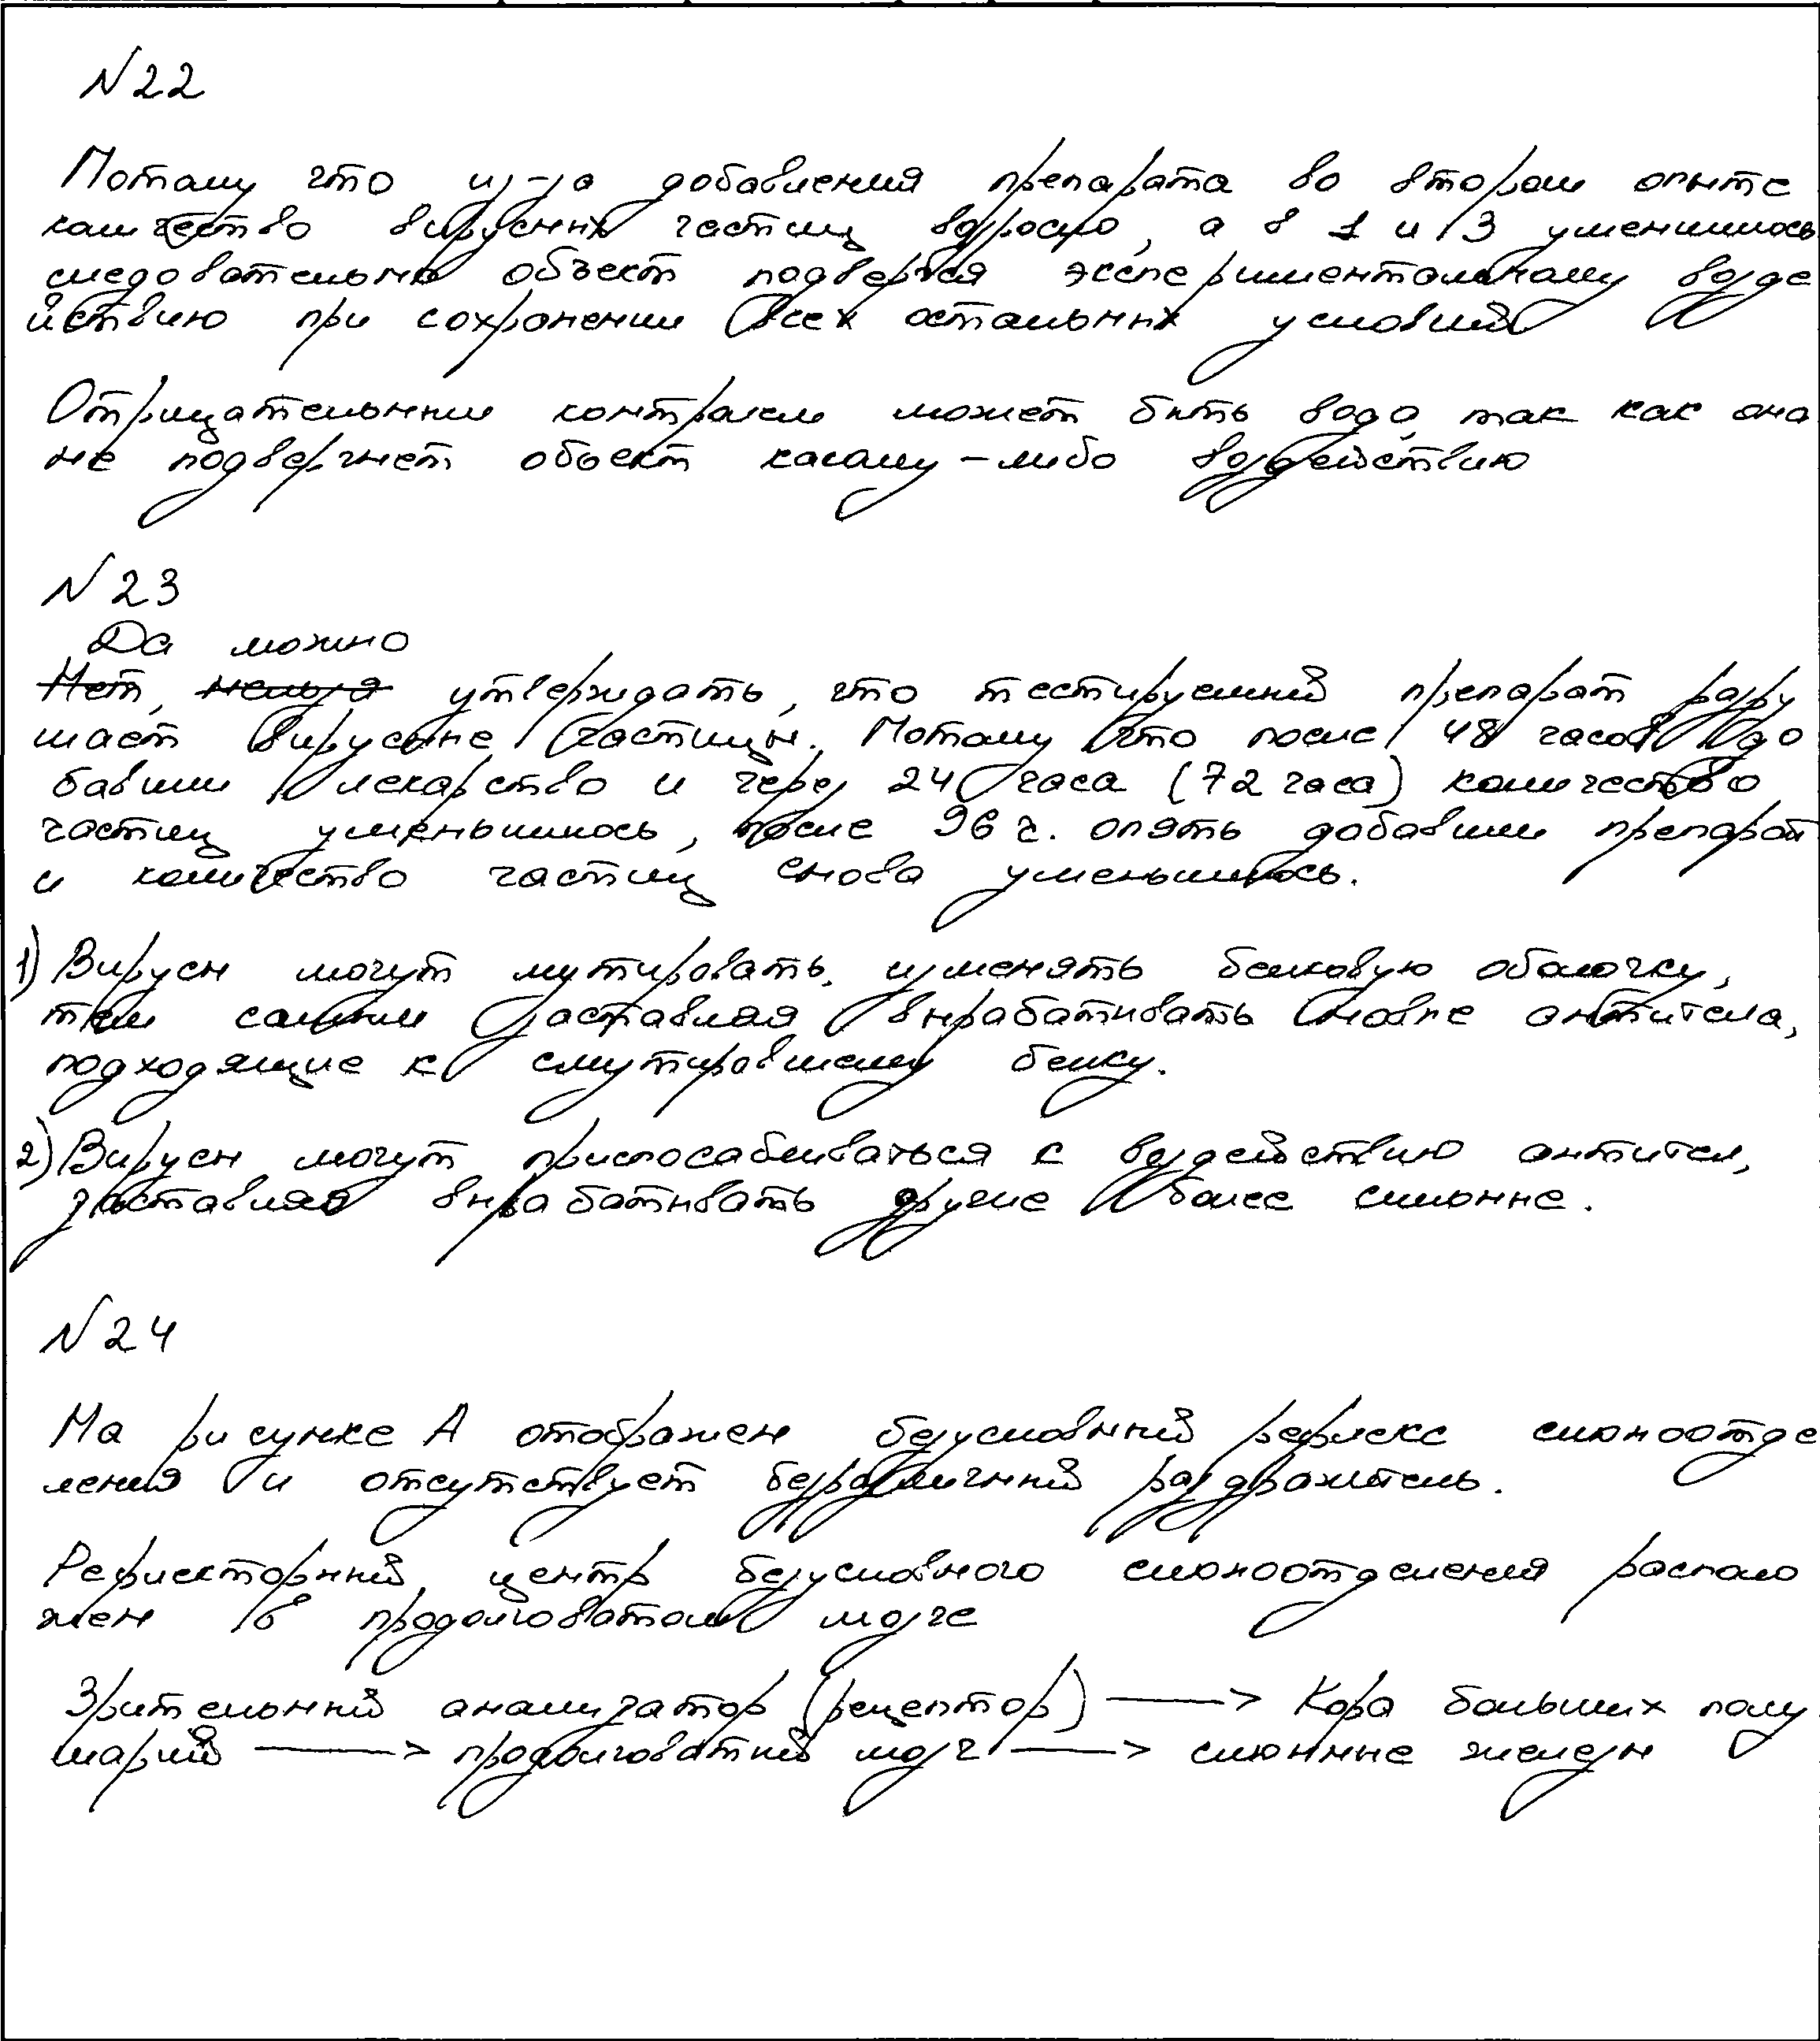 №22
Потому что из-за добавления препарата во втором опыте
количество вирусных частиц возросло, а в 1 и 3 уменшилось
следовательно объект подвергся экспериментальному возде
йствию при сохранении всех остальных условий
Отрицательным контролем может быть вода, так как она
не подвергнет объект какому-либо воздействию
№23
Да можно
Нет, нельзя утверждать, что тестируемый препарат разру
шает вирусные частицы. Потому что после 48 часов до
бавили лекарство и через 24 часа (72 часа) количество
частиц уменьшилось, после 96 ч. опять добавили препарат
и количество частиц снова уменьшилось.
1) Вирусы могут мутировать, изменять белковую оболочку,
тем самым заставляя вырабатывать новые антитела,
подходящие к смутировшему белку.
2) Вирусы могут приспосабливаться к воздействию антител,
заставляя вырабатывать другие более сильные.
№24
На рисунке А отображен безусловный рефлекс слюноотде
ления и отсутствует безразличный раздражитель.
Рефлекторный центр безусловного слюноотделения располо
жен в продолговатом мозге
Зрительный анализатор (рецептор) ⟶ Кора больших полу
шарий ⟶ продолговатый мозг ⟶ слюнные железы